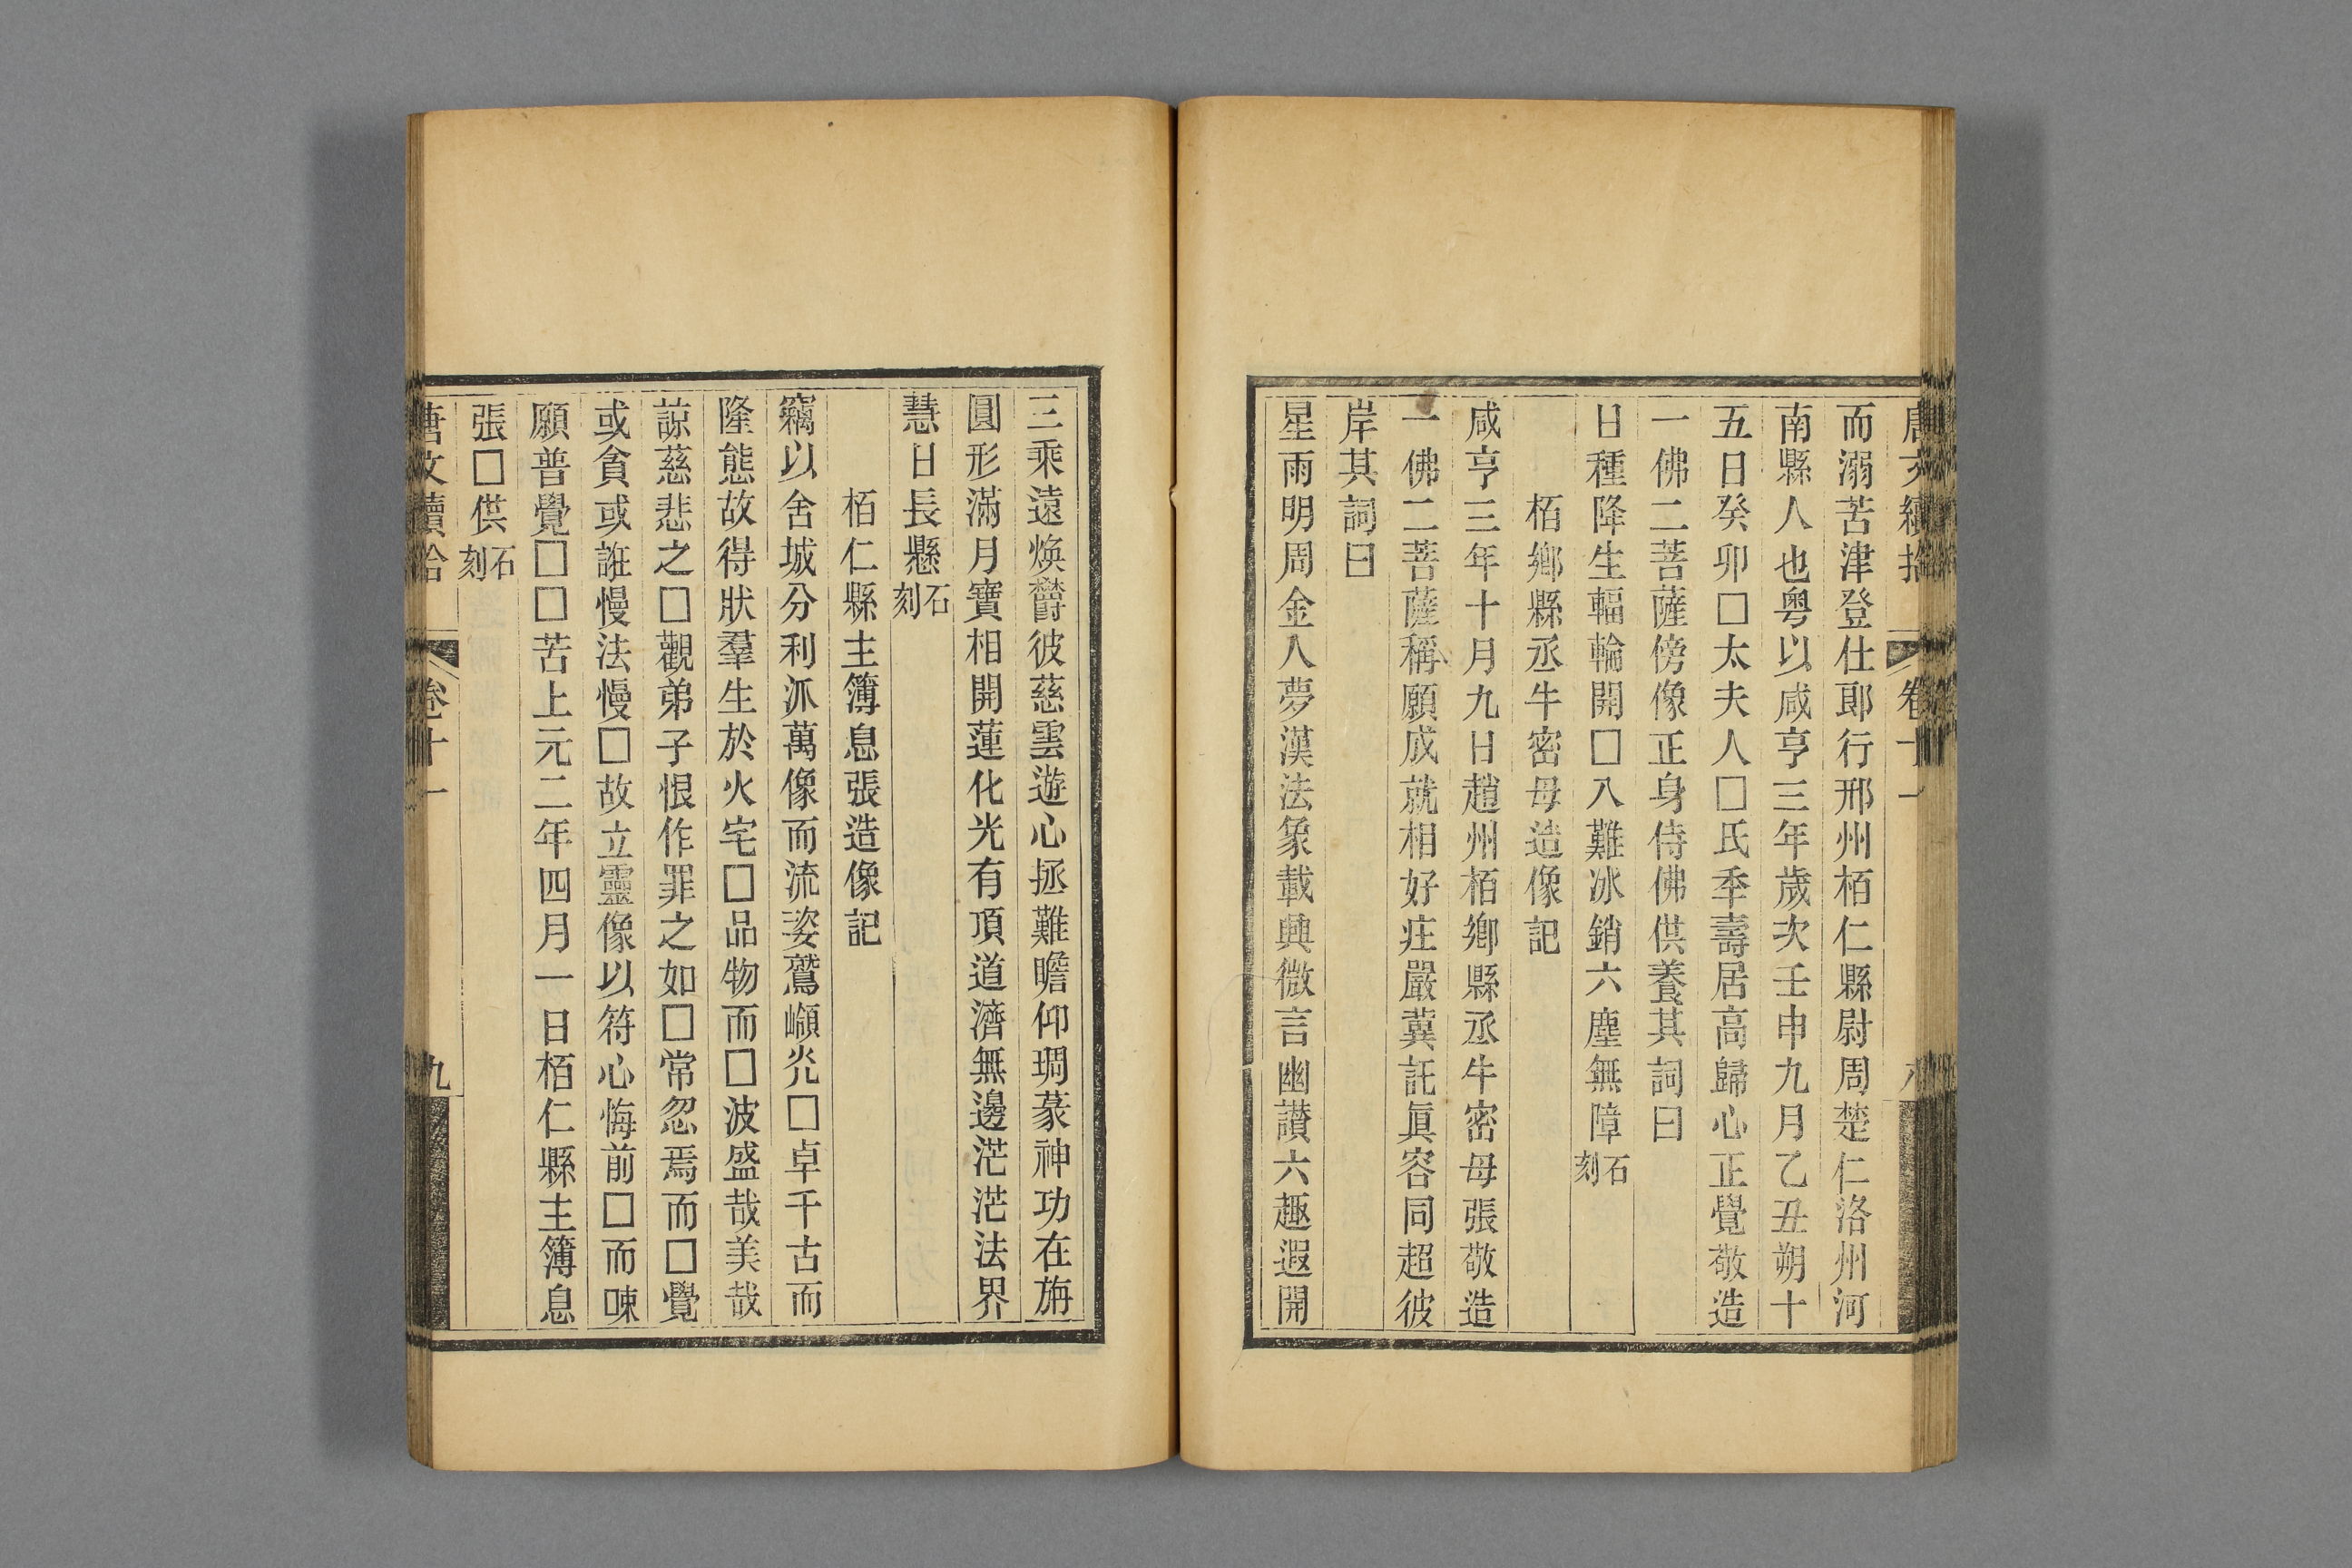 唐文續拾 卷十一 八
而溺苦津登仕郎行邢州栢仁縣尉周楚仁洛州河
南縣人也粤以咸亨三年歲次壬申九月乙丑朔十
五日癸卯□太夫人□氏秊壽居高歸心正覺敬造
一佛二菩薩傍像正身侍佛供養其詞曰
日種降生輻輪開□八難冰銷六塵無障石刻
栢鄉縣丞牛密母造像記
咸亨三年十月九日趙州栢鄉縣丞牛密母張敬造
一佛二菩薩稱願成就相好庄嚴冀託眞容同超彼
岸其詞曰
星雨明周金人夢漢法象載興微言幽讃六趣遐開
三乘遠煥欝彼慈雲遊心拯難瞻仰琱篆神功在旃
圓形滿月寶相開蓮化光有頂道濟無邊茫茫法界
慧日長懸石刻
栢仁縣主簿息張造像記
竊以舍城分利泒萬像而流姿鷲巓炗□卓千古而
隆態故得狀羣生於火宅□品物而□波盛哉美哉
諒慈悲之□觀弟子恨作罪之如□常忽焉而□覺
或貪或誑慢法慢□故立靈像以符心悔前□而㖦
願普覺□□苦上元二年四月一日栢仁縣主簿息
張□供石刻
唐文續拾 卷十一 九